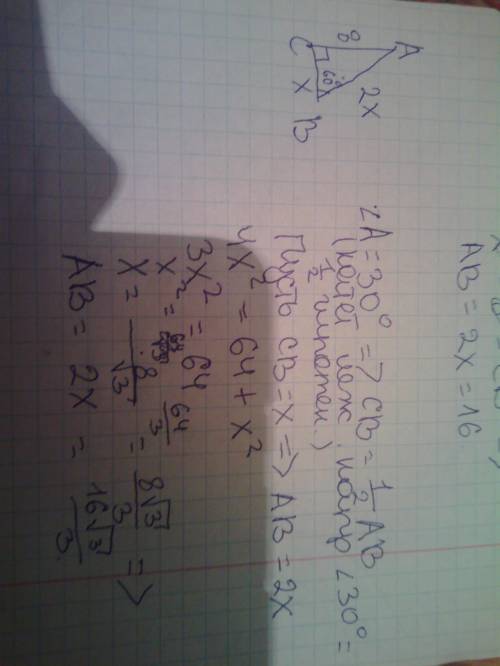 AB = 2x = 16
A
8
2x
60°
C
x
B
∠A = 30° => CB = 1/2 AB
(катет леж. напр ∠30° =
1/2 гипотен.)
Пусть CB = x => AB = 2x
4x² = 64 + x²
3x² = 64
x² = 64/3
x = 8/√3 = 8√3/3 =>
AB = 2x = 16√3/3